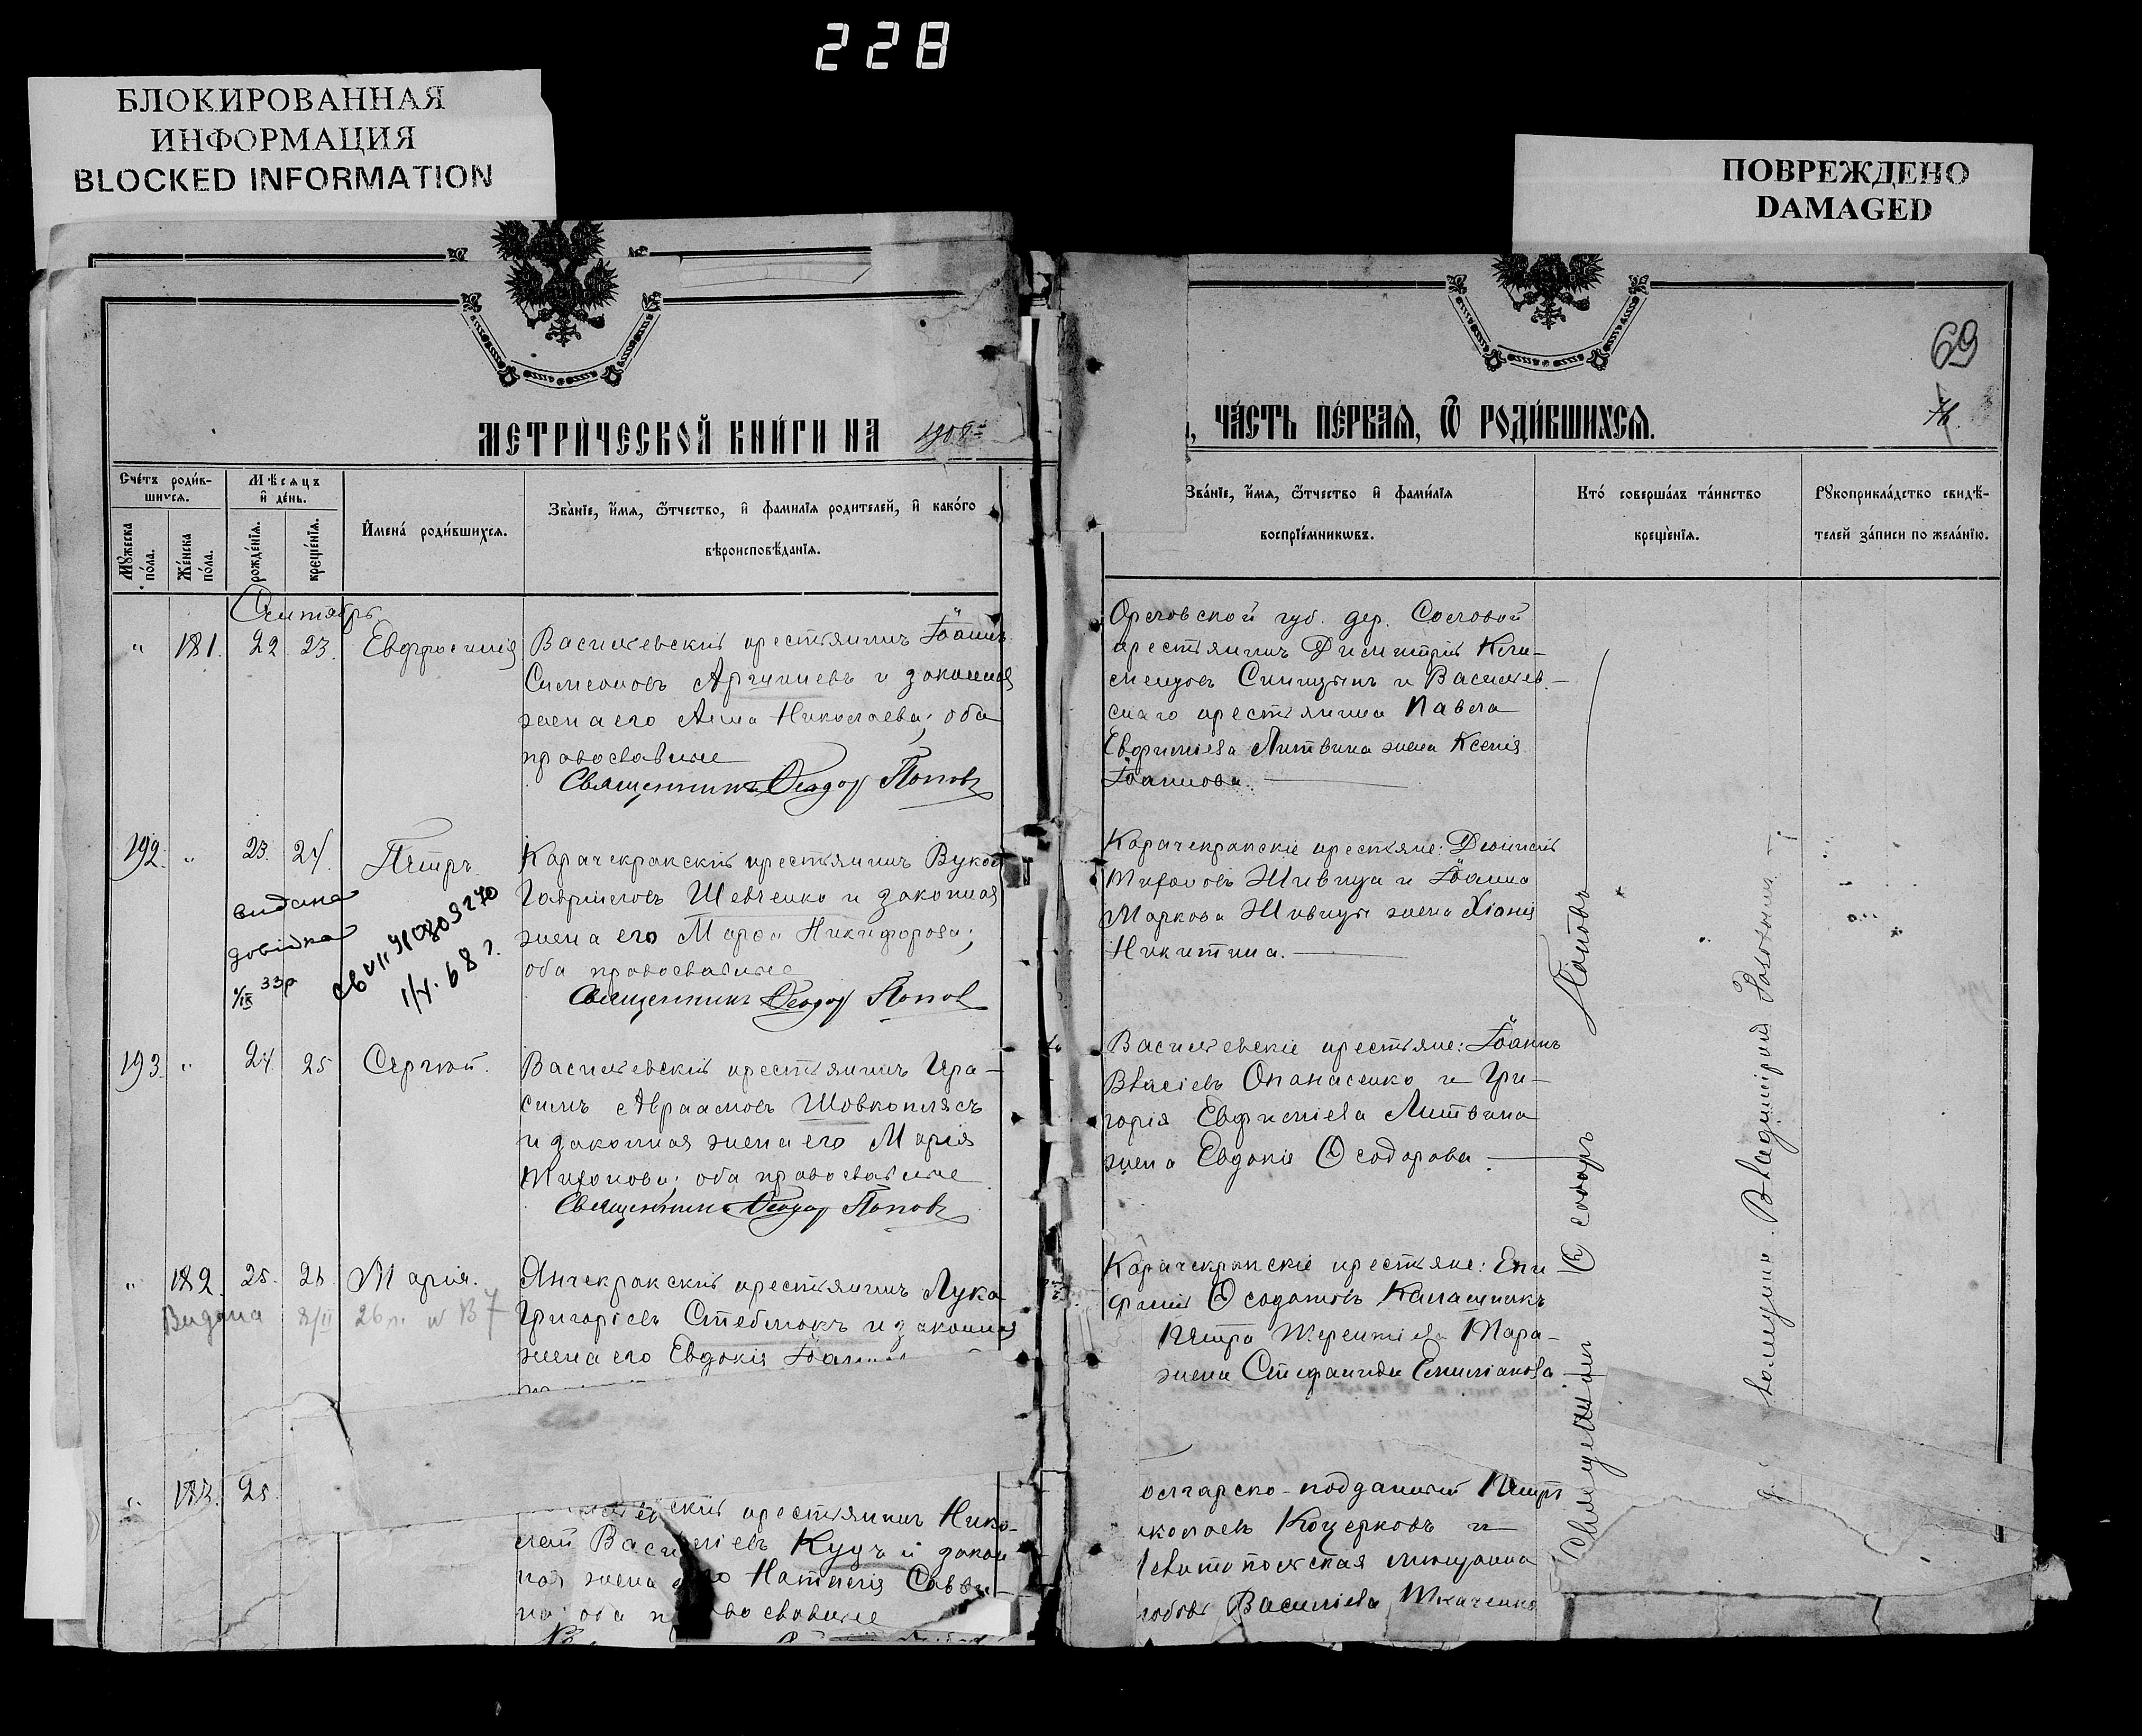 228
БЛОКИРОВАННАЯ
ИНФОРМАЦИЯ
BLOCKED INFORMATION
ПОВРЕЖДЕНО
DAMAGED
69
МЕТРИ́ЧЕСКОЙ КНИ́ГИ НА 1908
ЧА́СТЬ ПЕ́РВАѦ, Ѿ РОДИ́ВШИХСѦ.
Сче́тъ роди́в-
шихсѧ.
Мѣсѧцъ
и де́нь.
Мꙋжеска по́ла.
Же́нска по́ла.
рожде́нїѧ.
креще́нїѧ.
Имена́ роди́вшихсѧ.
Зва́нїе, и́мѧ, ѿтчество, и фами́лїѧ родителей, и како́го
вѣроисповѣ́данїѧ.
Зва́нїе, и́мѧ, ѿтчество и фами́лїѧ
воспрїе́мникѡвъ.
Кто́ соверша́лъ та́инство
креще́нїѧ.
Рꙋкоприкла́дство свидѣ́-
телей за́писи по жела́нїю.
Сентябрь
" 181. 22 23. Евфросинія
Василевскій крестьянинъ Іоаннъ
Симеоновъ и законная
жена его Анна Николаева; оба
православные
Священникъ Ѳеодоръ Поповъ
Орловской губ. дер. Сосновой
крестьянинъ Димитрій Кли-
ментовъ и Василев-
скаго крестьянина Павла
Евфиміева Литвина жена Ксенія
Іоаннова.
192. " 23. 24. Петръ.
видана
довідка
33р
1/IV. 68 г.
Карачекракскій крестьянинъ
Гавриловъ Шевченко и законная
жена его Марѳа Никифорова;
оба православные
Священникъ Ѳеодоръ Поповъ
Карачекракскіе крестьяне: Діонисій
Тихоновъ Живица и Іоанна
Маркова Живицы жена Хіонія
Никитина.
193. " 24 25 Сергій.
Василевскій крестьянинъ Гера-
симъ Авраамовъ Шовкоплясъ
и законная жена его Марія
Тихонова; оба православные
Священникъ Ѳеодоръ Поповъ
Василевскіе крестьяне: Іоаннъ
Власіевъ Опанасенко и Гри-
горія Евфиміева Литвина
жена Евдокія Ѳеодорова.
" 182. 25. 26. Марія.
Видана 8/II 26 р. № 87
Янчекракскій крестьянинъ Лука
Григоріевъ Стеблюкъ и законная
жена его Евдокія
Карачекракскіе крестьяне: Епи-
фаній Калашникъ
Петра Терентіева
жена Стефанида Емиліанова
" 183. 25.
скій крестьянинъ Нико-
лай Василіевъ Куцъ и закон
ная жена его Наталія Савви-
на; оба православные
болгарско-подданный Петръ
Коцерковъ и
мѣщанка
Василіева Ткаченко
Священникъ Ѳеодоръ Поповъ
Владимірій